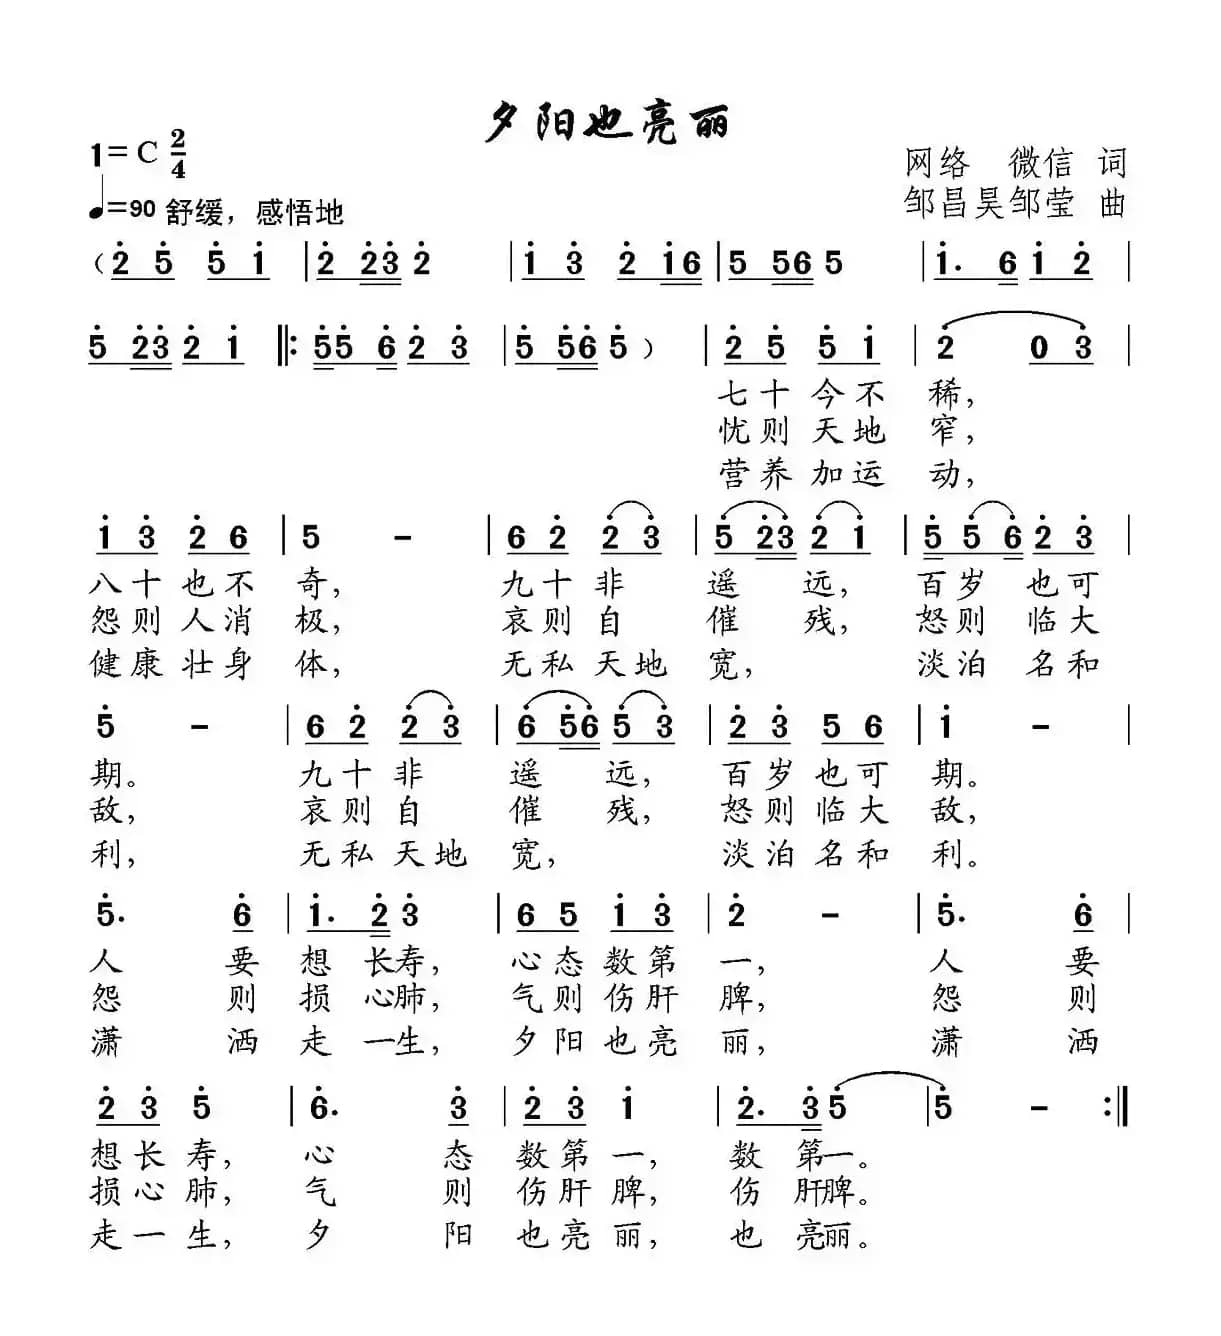 夕阳也亮丽
1=C 2/4
网络 微信 词
♩=90 舒缓，感悟地
邹昌昊邹莹 曲
（2̇ 5̇ 5̇ 1̇ | 2̇ 2̇3̇ 2̇ | 1̇ 3̇ 2̇ 1̇6 | 5 56 5 | 1̇. 6 1̇ 2̇ |
5̇ 2̇3̇ 2̇ 1̇ ‖: 5̇5̇ 6̇ 2̇ 3̇ | 5̇ 5̇6̇ 5̇ ） | 2̇ 5̇ 5̇ 1̇ | 2̇ 0 3̇ |
七十今不 稀，
忧则天地 窄，
营养加运 动，
1̇ 3̇ 2̇ 6 | 5 - | 6 2̇ 2̇ 3̇ | 5̇ 2̇3̇ 2̇ 1̇ | 5̇ 5̇ 6̇ 2̇ 3̇ |
八十也不 奇， 九十非 遥 远， 百岁 也可
怨则人消 极， 哀则自 催 残， 怒则 临大
健康壮身 体， 无私天地 宽， 淡泊 名和
5̇ - | 6 2̇ 2̇ 3̇ | 6̇ 5̇6̇ 5̇ 3̇ | 2̇ 3̇ 5 6 | 1̇ - |
期。 九十非 遥 远， 百岁也可 期。
敌， 哀则自 催 残， 怒则临大 敌，
利， 无私天地 宽， 淡泊名和 利。
5̇. 6̇ | 1̇. 2̇ 3̇ | 6 5 1̇ 3̇ | 2̇ - | 5̇. 6̇ |
人 要 想 长寿， 心态数第 一， 人 要
怨 则 损 心肺， 气则伤肝 脾， 怨 则
潇 洒 走 一生， 夕阳也亮 丽， 潇 洒
2̇ 3̇ 5̇ | 6̇. 3̇ | 2̇ 3̇ 1̇ | 2̇. 3̇ 5̇ | 5̇ - :‖
想长寿， 心 态 数第一， 数 第一。
损心肺， 气 则 伤肝脾， 伤 肝脾。
走一生， 夕 阳 也亮丽， 也 亮丽。